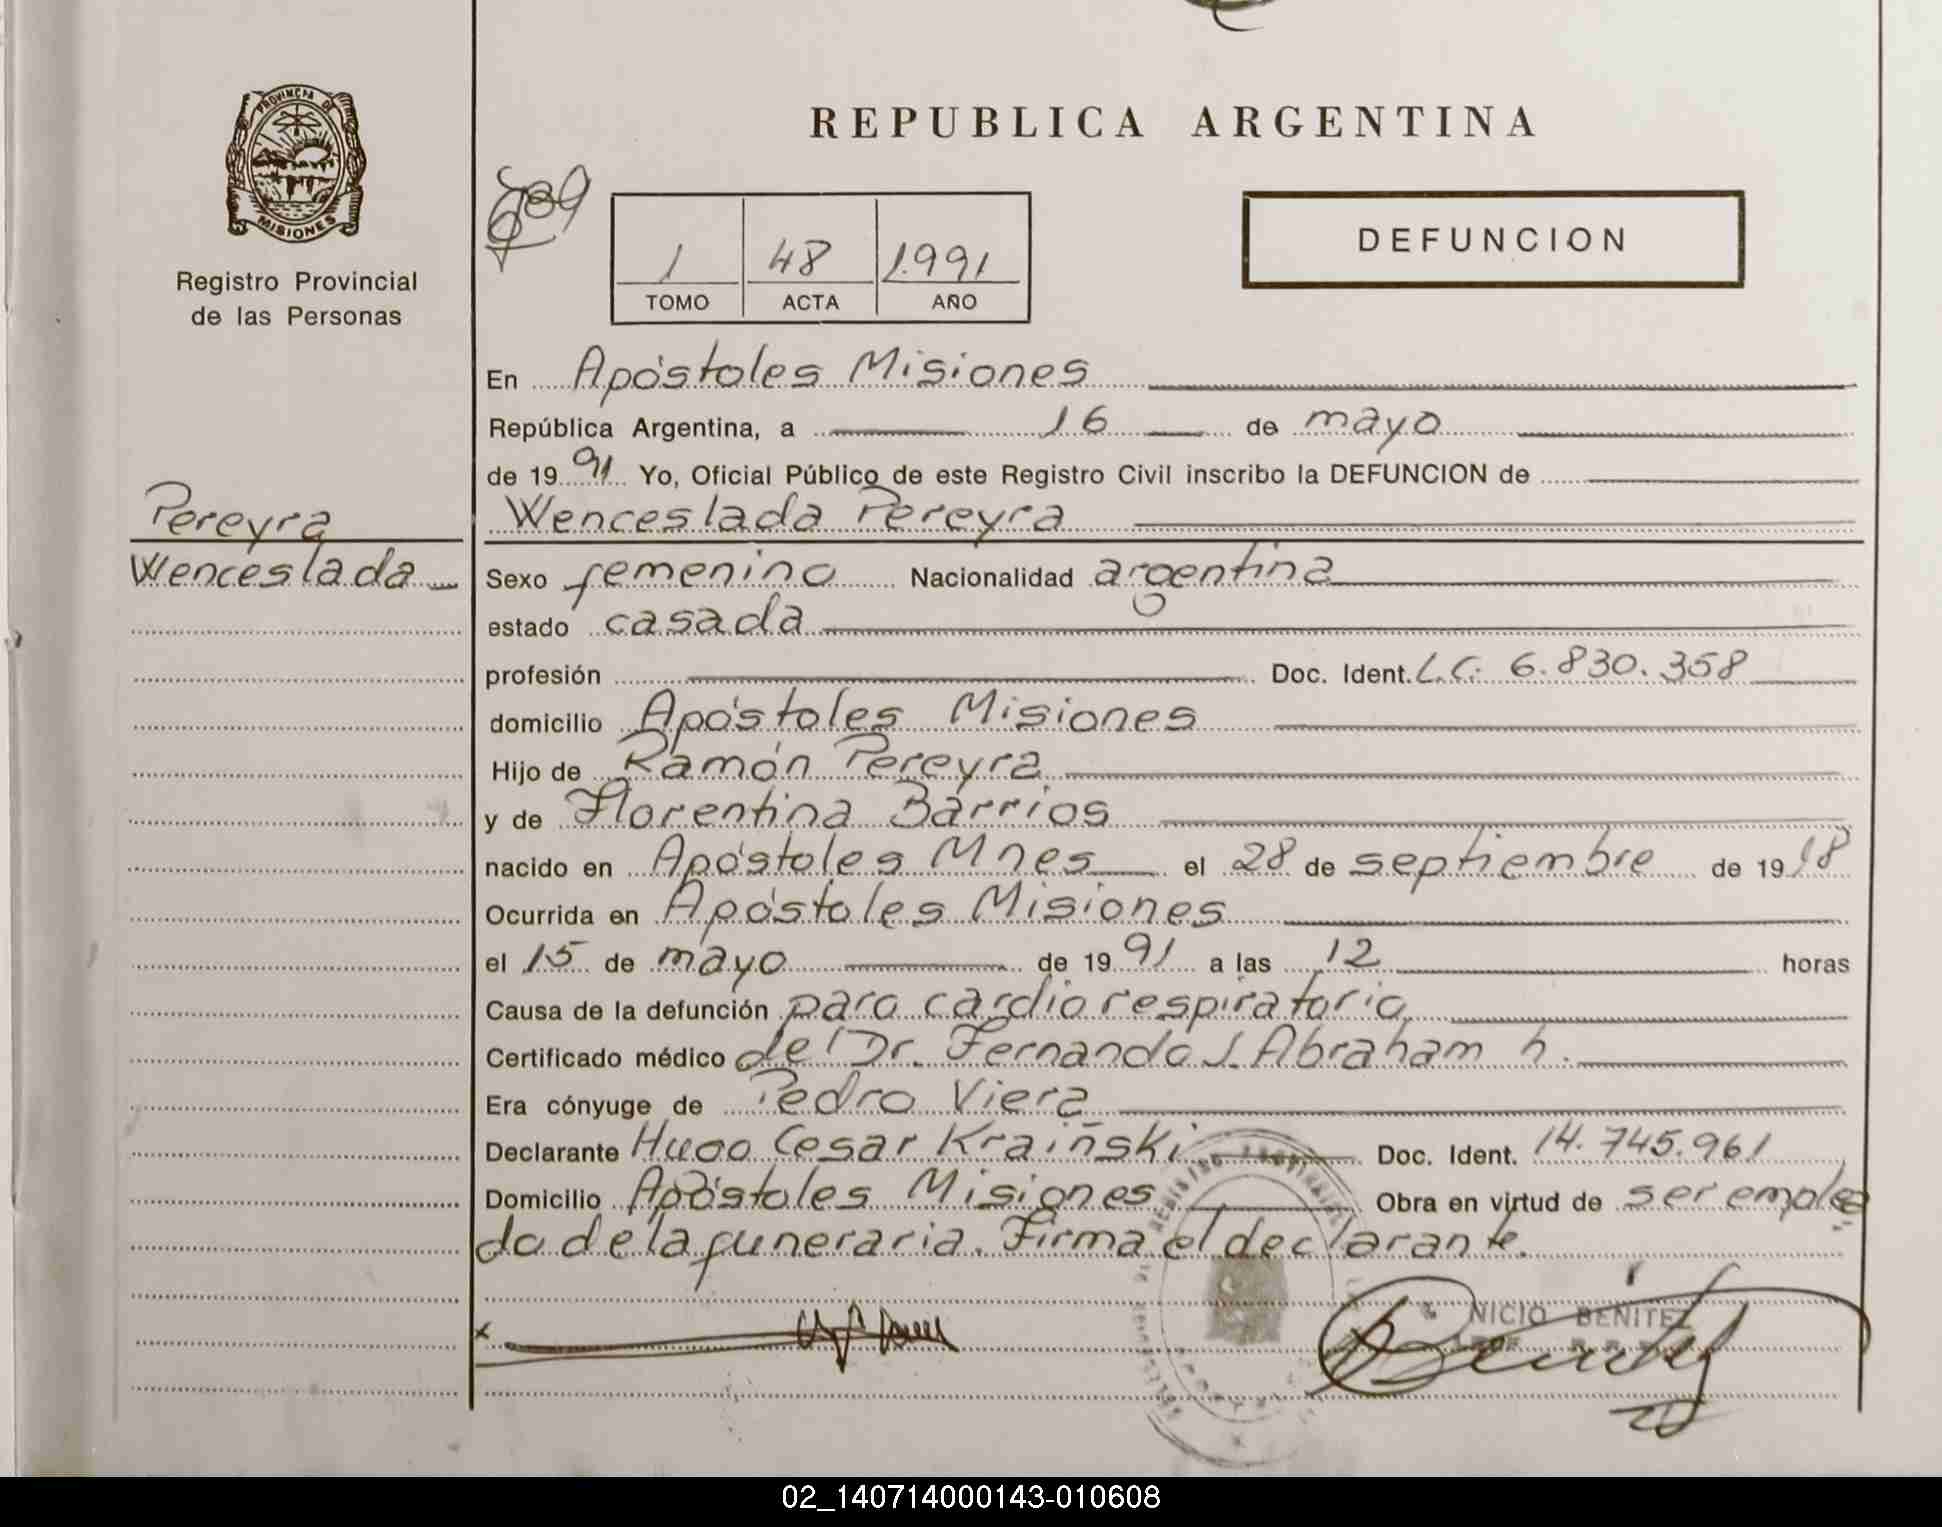 PROVINCIA DE
MISIONES
Registro Provincial
de las Personas
REPUBLICA ARGENTINA
1 48 1.991
TOMO ACTA AÑO
DEFUNCION
En Apóstoles Misiones
República Argentina, a 16 de mayo
de 19 91 Yo, Oficial Público de este Registro Civil inscribo la DEFUNCION de
Wenceslada Pereyra
Pereyra
Wenceslada
Sexo femenino Nacionalidad argentina
estado casada
profesión Doc. Ident. L.C. 6.830.358
domicilio Apóstoles Misiones
Hijo de Ramón Pereyra
y de Florentina Barrios
nacido en Apóstoles Mnes el 28 de septiembre de 19 18
Ocurrida en Apóstoles Misiones
el 15 de mayo de 19 91 a las 12 horas
Causa de la defunción paro cardio respiratorio
Certificado médico del Dr. Fernando J. Abraham h.
Era cónyuge de Pedro Viera
Declarante Hugo Cesar Kraiñski Doc. Ident. 14.745.961
Domicilio Apóstoles Misiones Obra en virtud de ser emplea
do de la funeraria. Firma el declarante.
NICIO BENITEZ
02_140714000143-010608